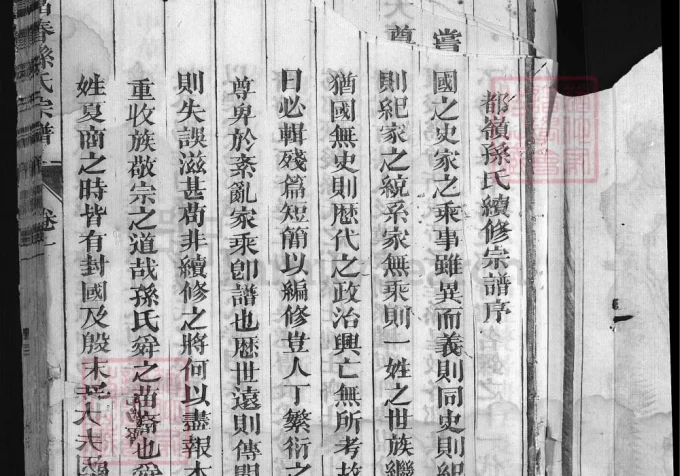 都嶺孫氏續修宗譜序
國之史家之乘事雖異而義則同史則紀
則紀家之統系家無乘則一姓之世族繼
猶國無史則歷代之政治興亡無所考故
日必輯殘篇短簡以編修豈人丁繁衍之
尊卑於紊亂家乘卽譜也歷世遠則傳聞
則失誤滋甚苟非續修之將何以盡報本
重收族敬宗之道哉孫氏舜之苗裔也
姓夏商之時皆有封國及殷末
春孫氏宗譜
卷